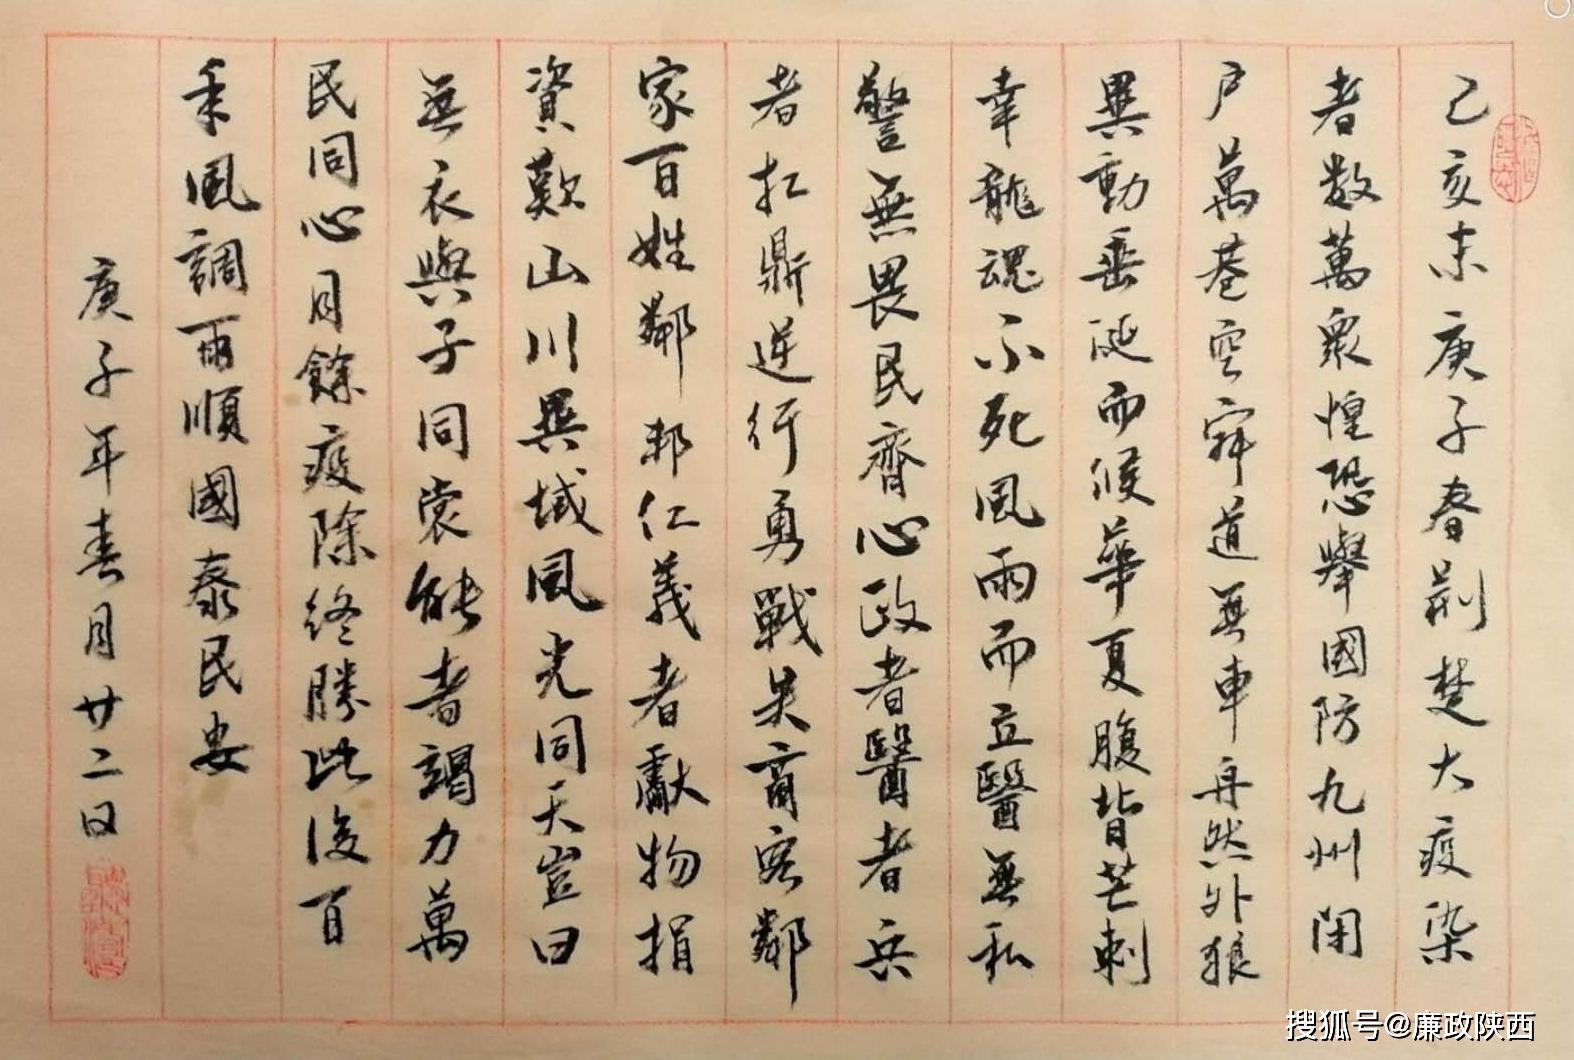 己亥末庚子春荊楚大疫染
者數萬眾惶恐舉國防九州閉
戶萬巷空寂道無車舟然外狼
異動垂涎而候華夏腹背芒刺
幸龍魂不死風雨而立醫無私
警無畏民齊心政者醫者兵
者扛鼎逆行勇戰矣商客鄰
家百姓鄰邦仁義者獻物捐
資歎山川異域風光同天豈曰
無衣與子同裳能者竭力萬
民同心月餘疫除終勝此後百
年風調雨順國泰民安
庚子年春月廿二日
搜狐号@廉政陕西